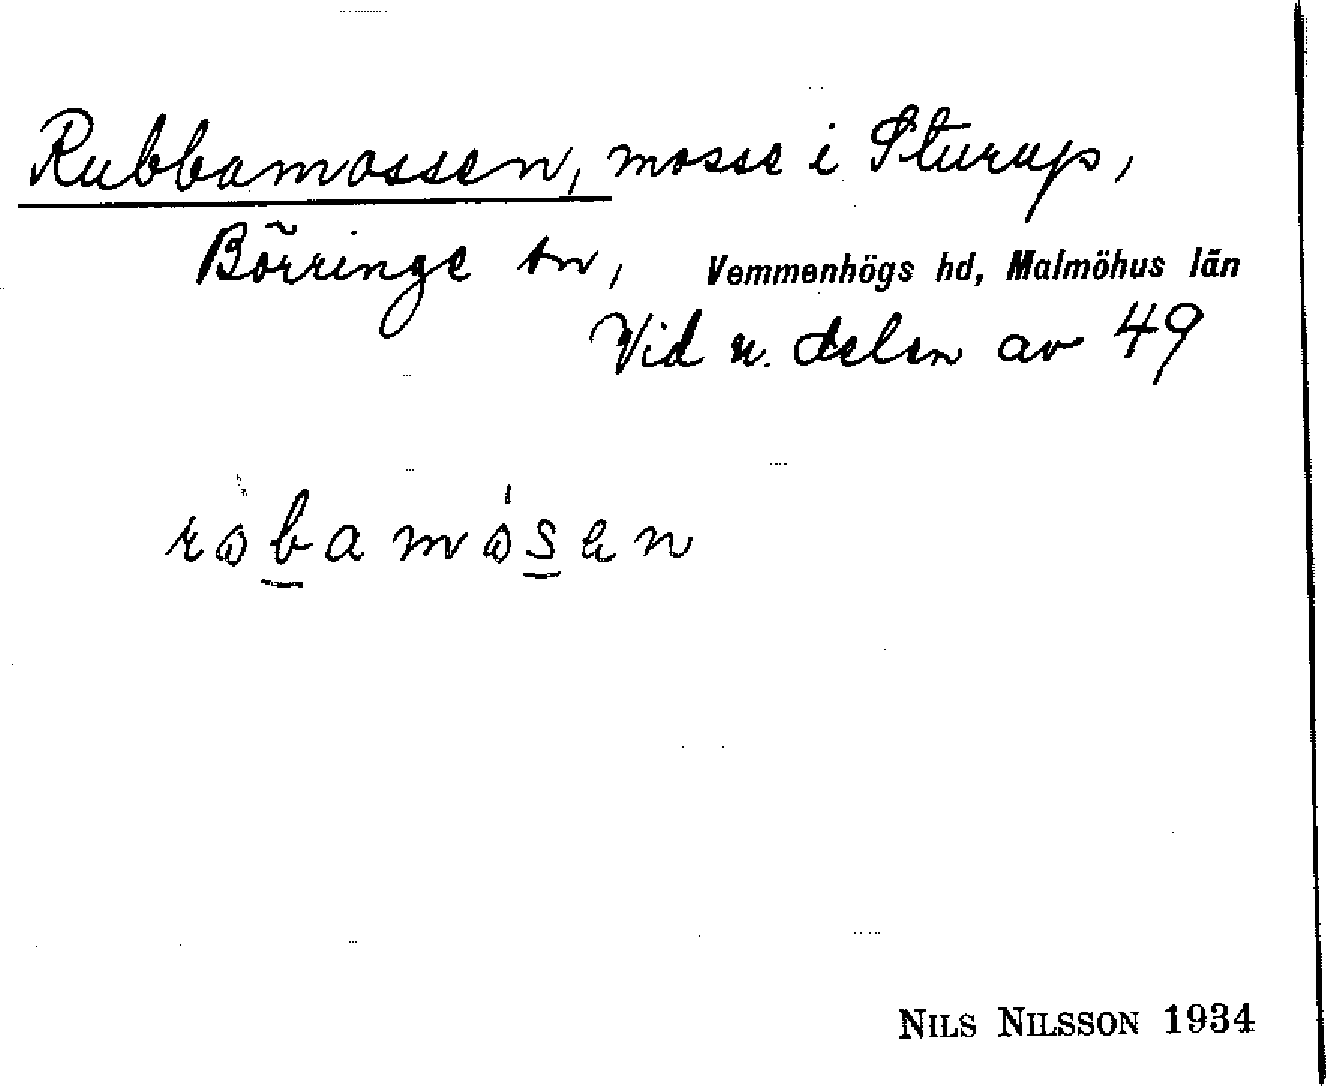 Rubbamossen, mosse i Sturup,
Börringe sn, Vemmenhögs hd, Malmöhus län
Vid n. delen av 49
NILS NILSSON 1934